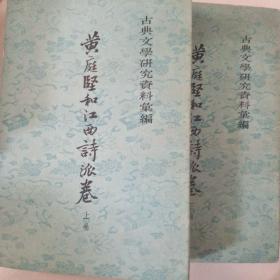 古典文學研究資料彙編
黄庭堅和江西詩派卷
上卷
古典文學研究資料彙編
黄庭堅和江西詩派卷